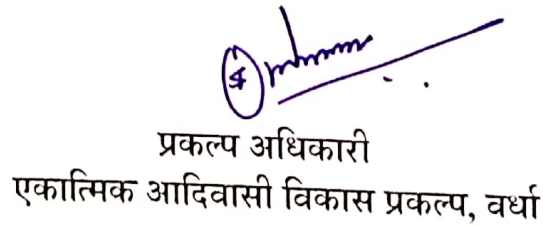 प्रकल्प अधिकारी
एकात्मिक आदिवासी विकास प्रकल्प, वर्धा